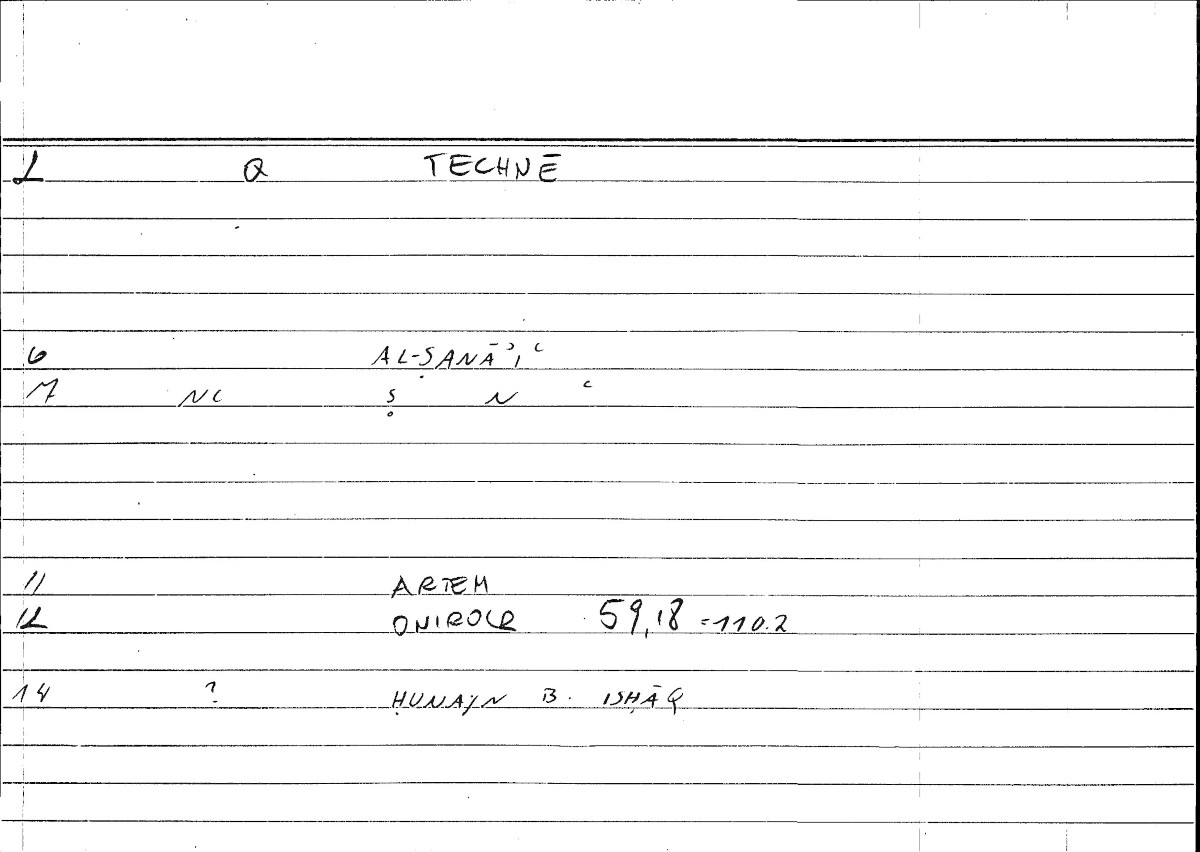 1 Q TECHNĒ
6 AL-ṢANĀʾIʿ
7 NC Ṣ N ʿ
11 ARTEM
12 ONIROCR 59,18 =110.2
14 ? ḤUNAYN B. ISḤĀQ